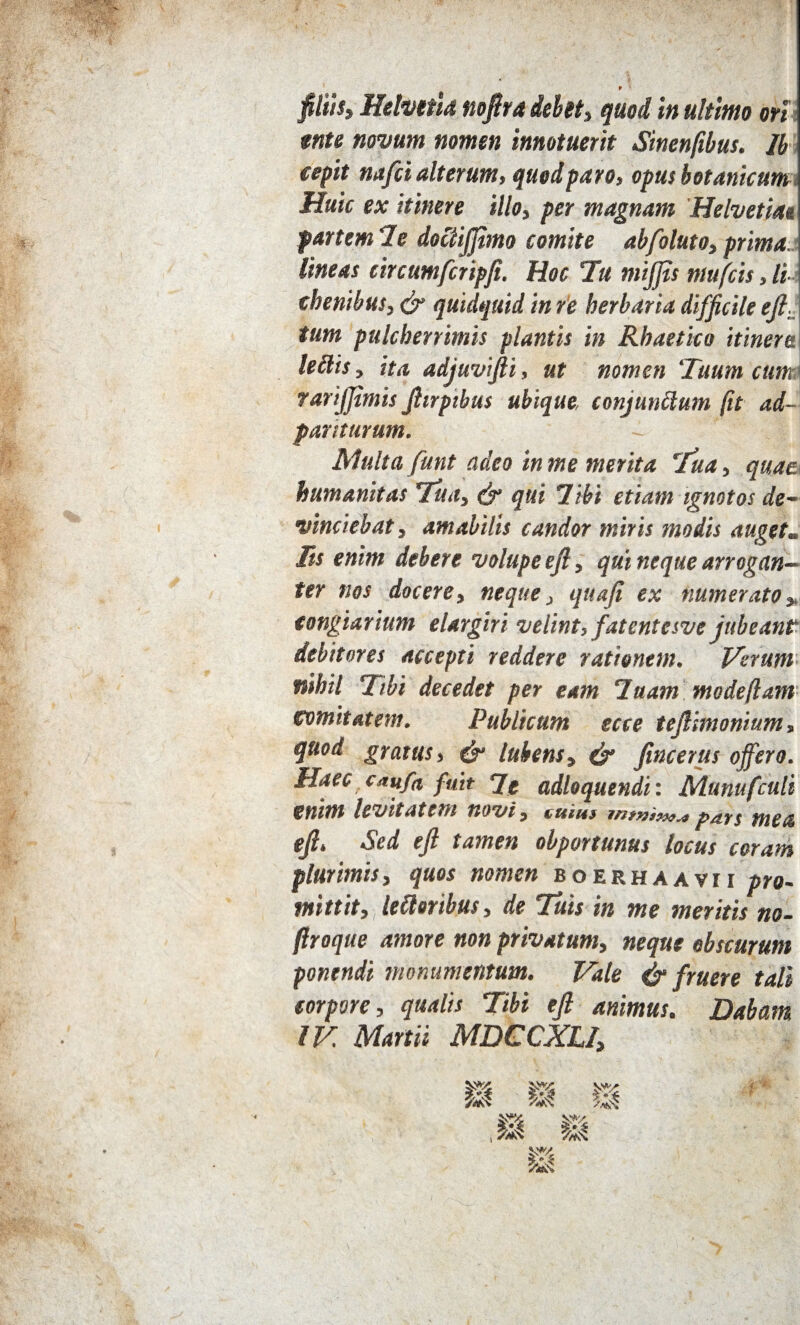 filiis, Helvetia noſtra debet, quod in ultimo ori
ente novum nomen innotuerit Sinenſibus. Ib
cepit naſci alterum, quod paro, opus botanicum
Huic ex itinere illo, per magnam Helvetiae
partem Te doctiſſimo comite abſoluto, prima
lineas circumſcripſi. Hoc Tu miſſis muſcis, li-
chenibus, & quidquid in re herbaria difficile eſt,
tum pulcherrimis plantis in Rhaetico itinere
lectis, ita adjuviſti, ut nomen Tuum cum
rariſſimis ſtirpibus ubique conjunctum ſit ad-
pariturum.
Multa ſunt adeo in me merita Tua, quae
humanitas Tua, & qui Tibi etiam ignotos de-
vinciebat, amabilis candor miris modis auget.
Iis enim debere volupe eſt, qui neque arrogan-
ter nos docere, neque, quaſi ex numerato,
congiarium elargiri velint, fatentesve jubeant
debitores accepti reddere rationem. Verum
nihil Tibi decedet per eam Tuam modeſtam
comitatem. Publicum ecce teſtimonium,
quod gratus, & lubens, & ſincerus offero.
Haec cauſa fuit Te adloquendi: Munuſculi
enim levitatem novi, cuius minima pars mea
eſt. Sed eſt tamen obportunus locus coram
plurimis, quos nomen BOERHAAVII pro-
mittit, lectoribus, de Tuis in me meritis no-
ſtroque amore non privatum, neque obscurum
ponendi monumentum. Vale & fruere tali
corpore, qualis Tibi eſt animus. Dabam
IV. Martii MDCCXLI,